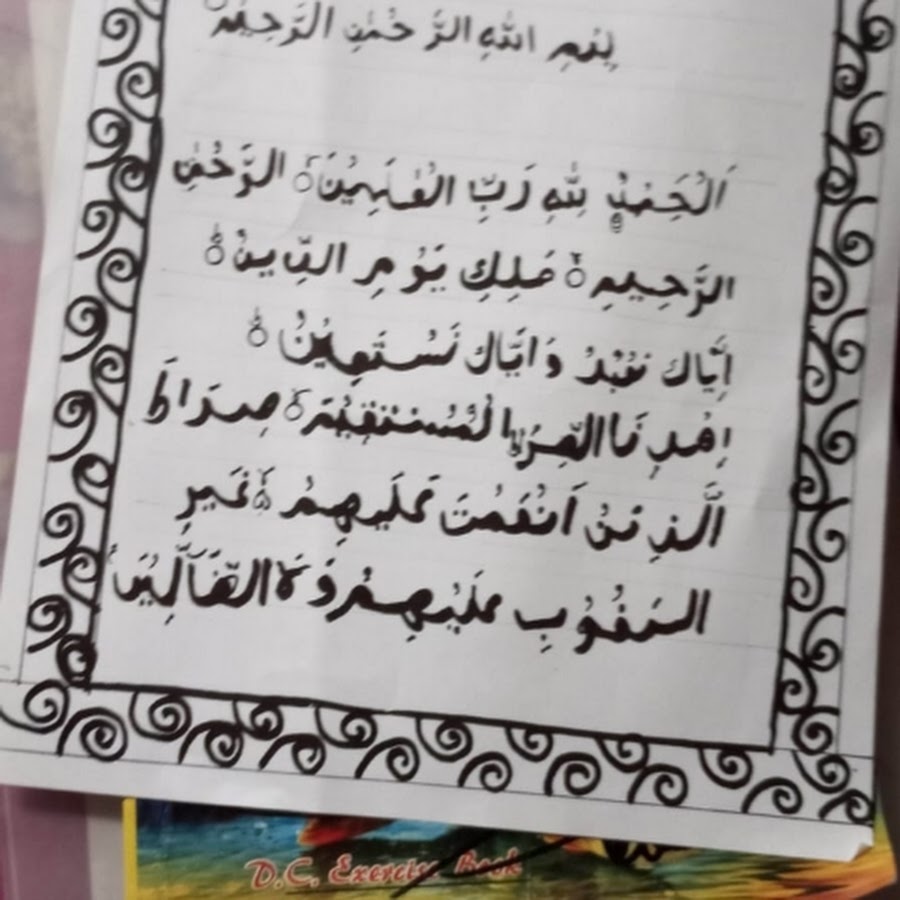 بِسْمِ اللهِ الرَّحْمٰنِ الرَّحِيْمِ
اَلْحَمْدُ لِلّٰهِ رَبِّ الْعٰلَمِيْنَ ۙ الرَّحْمٰنِ
الرَّحِيْمِ ۙ مٰلِكِ يَوْمِ الدِّيْنِ ۙ
اِيَّاكَ نَعْبُدُ وَاِيَّاكَ نَسْتَعِيْنُ ۙ
اِهْدِنَا الصِّرَاطَ الْمُسْتَقِيْمَ ۙ صِرَاطَ
الَّذِيْنَ اَنْعَمْتَ عَلَيْهِمْ ۙ غَيْرِ
المَغْضُوْبِ عَلَيْهِمْ وَلَا الضَّآلِّيْنَ
D.C. Exercise Book